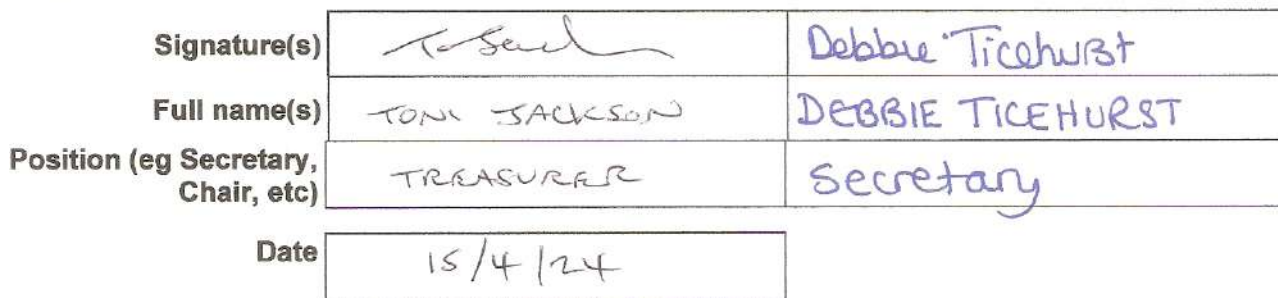 Signature(s) Debbie Ticehurst
Full name(s) TONI JACKSON DEBBIE TICEHURST
Position (eg Secretary, TREASURER Secretary
Chair, etc)
Date 15/4/24